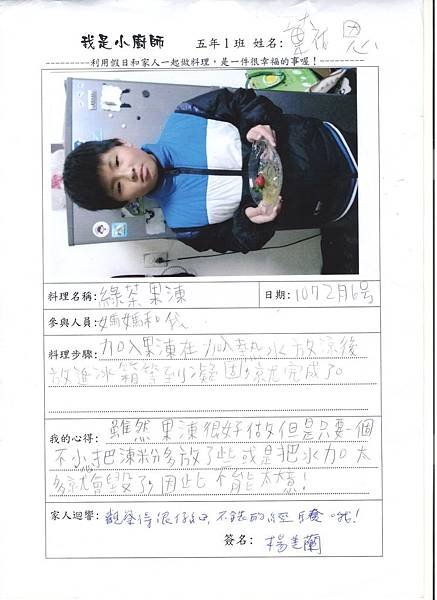 我是小廚師 五年1班 姓名: 葉祐恩
----------利用假日和家人一起做料理，是一件很幸福的事喔！----------
料理名稱: 綠茶果凍 日期: 107 2月6號
參與人員: 媽媽和我
料理步驟: 加入果凍在加入熱水放涼後
放進冰箱等到凝固就完成了。
我的心得: 雖然果凍很好做但是只要一個
不小把凍粉多放了些或是把水加太
多就會毀了,因此不能太意!
家人迴響: 觀察得很仔細,不錯的經驗哦!
簽名: 楊 蘭